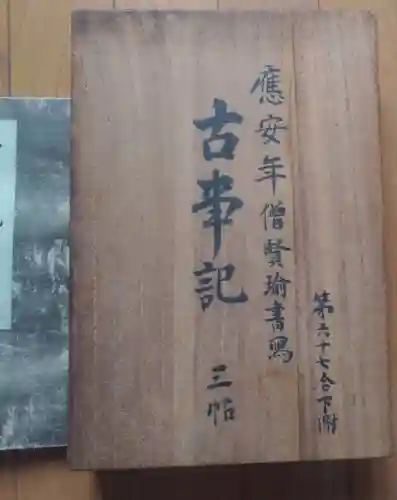 應安年僧賢瑜書寫
古事記 三帖
第六十七合下附